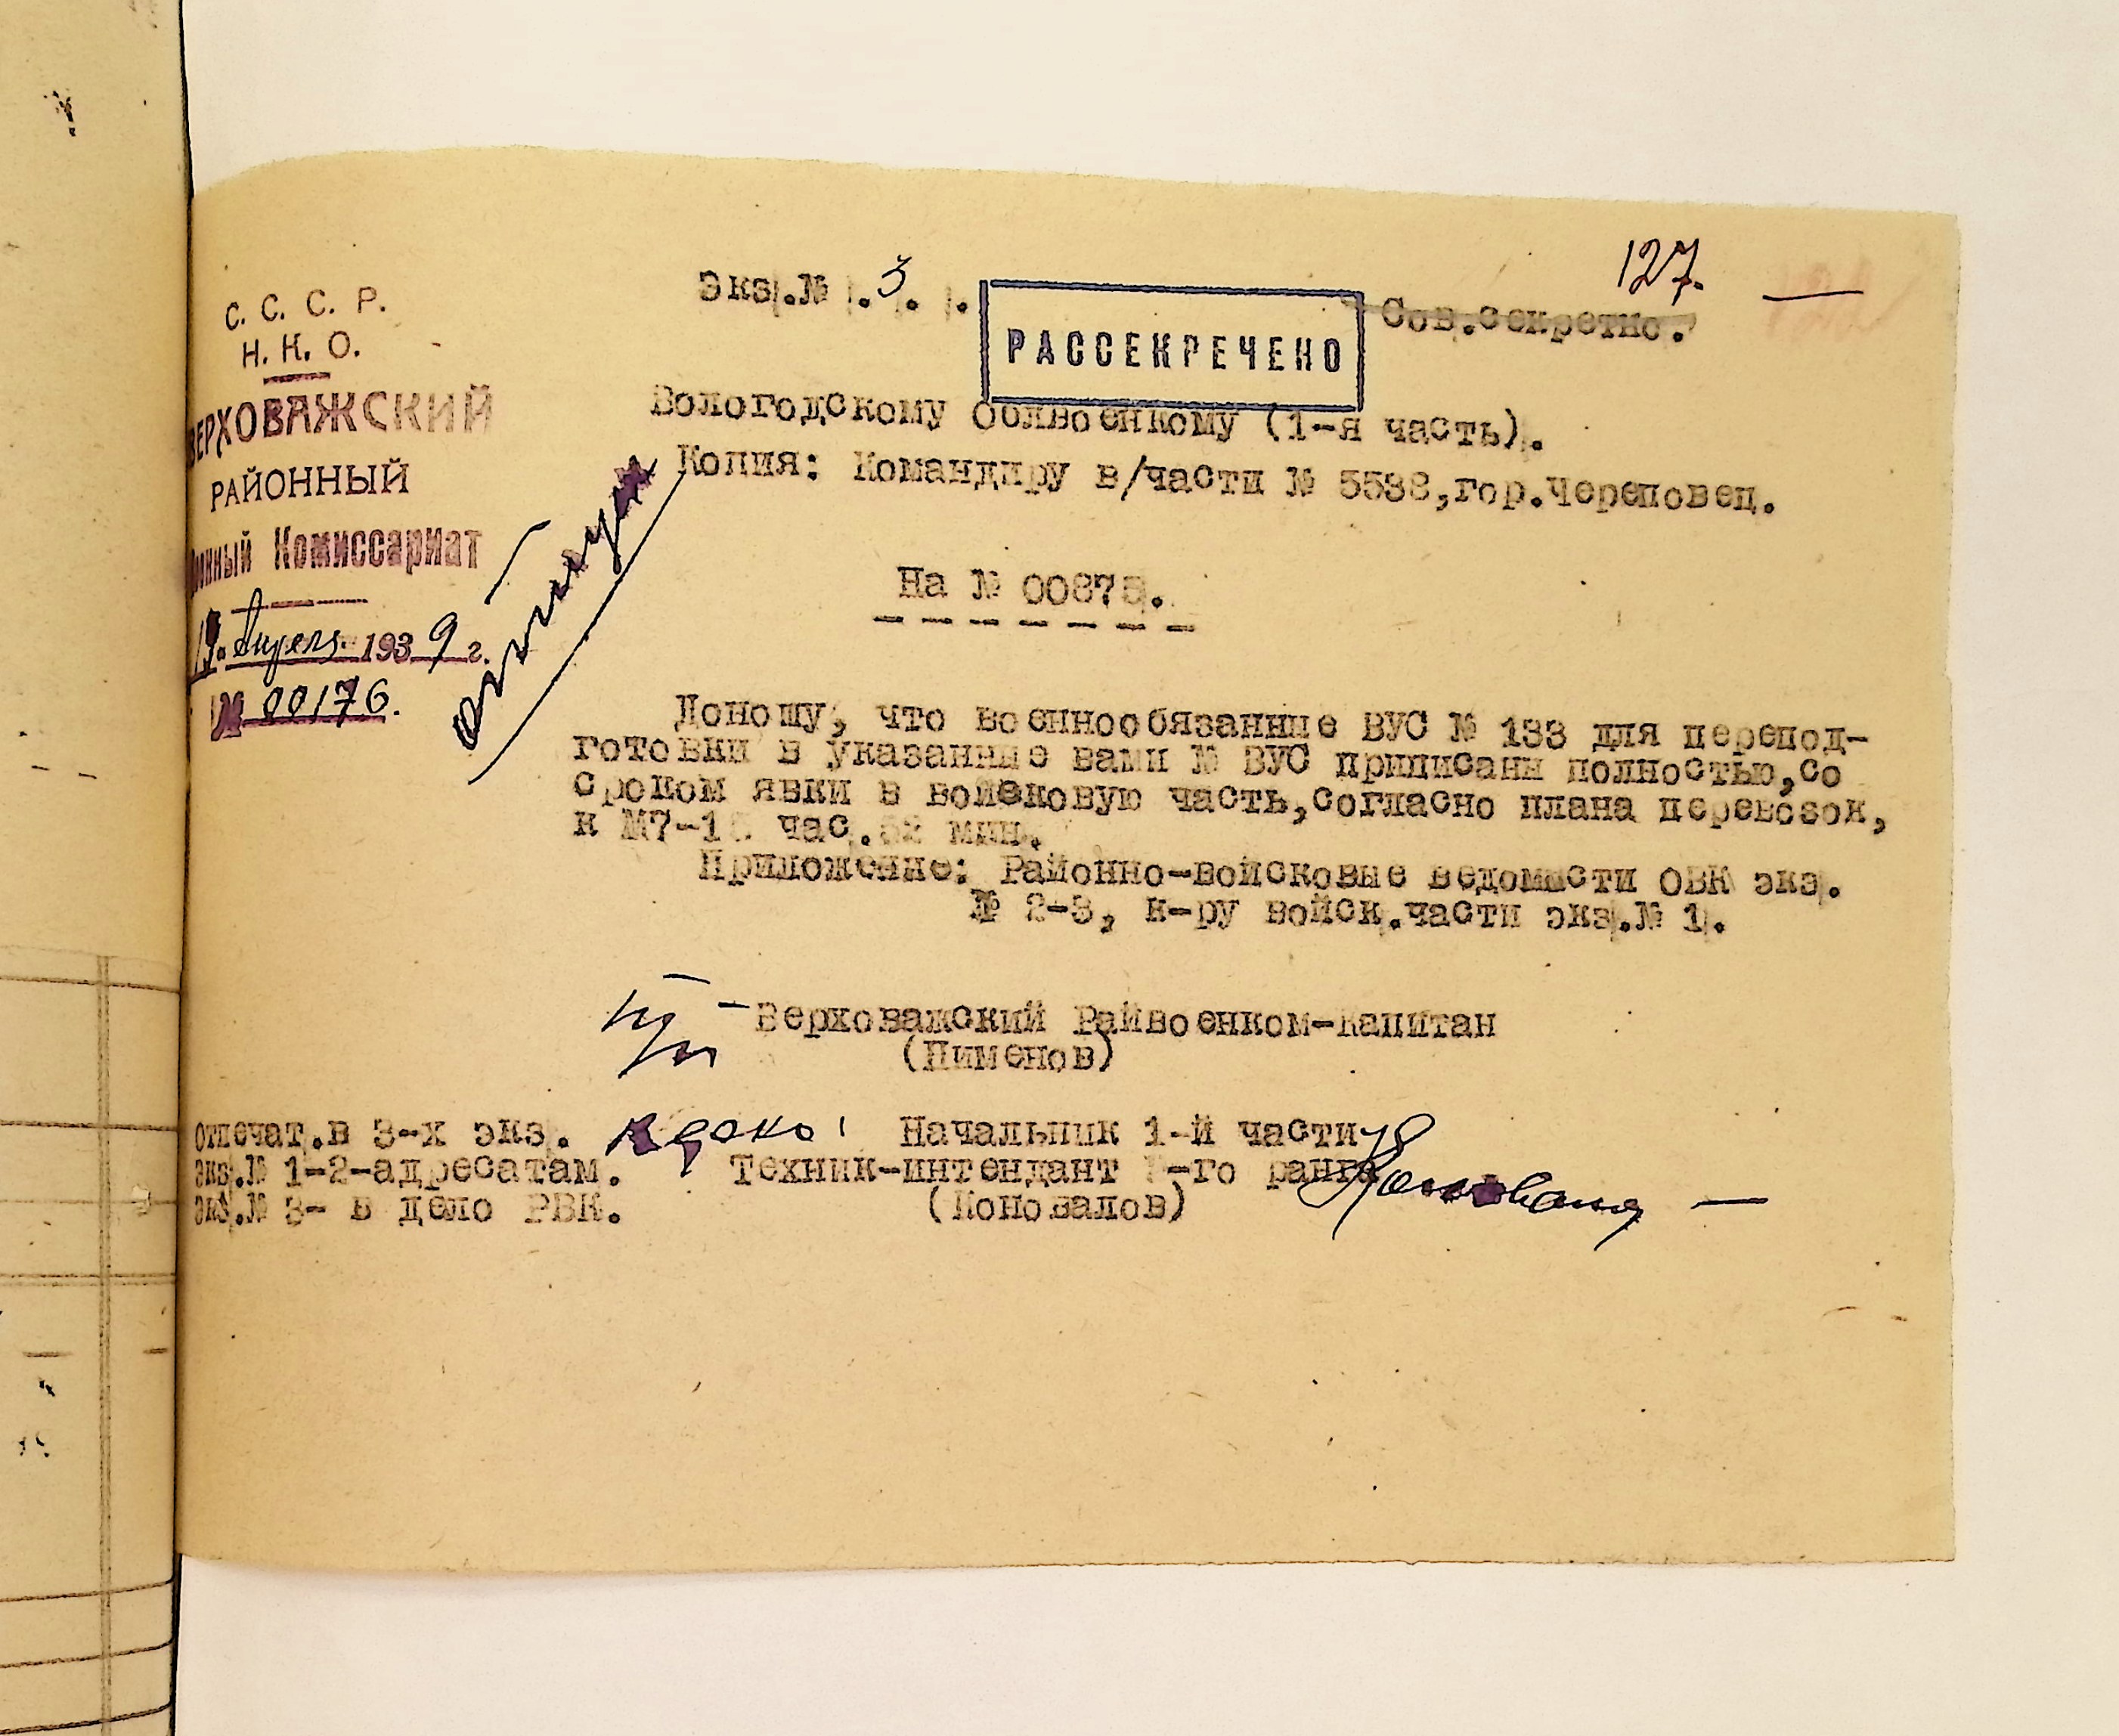 127.
Экз.№ .3. .
РАССЕКРЕЧЕНО
Сов.секретно.
С. С. С. Р.
Н. К. О.
ВЕРХОВАЖСКИЙ
РАЙОННЫЙ
Военный Комиссариат
19. Апреля 1939 г.
№ 00176.
Вологодскому Облвоенкому (1-я часть).
Копия: Командиру в/части № 5538,гор.Череповец.
На № 00878.
Доношу, что военнообязанные ВУС № 133 для перепод-
готовки в указанные вами № ВУС приписаны полностью,со
сроком явки в войсковую часть,согласно плана перевозок,
к М7- час. мин.
Приложение: Районно-войсковые ведомости ОВК экз.
№ 2-3, к-ру войск.части экз.№ 1.
Верховажский Райвоенком-капитан
(Пименов)
Начальник 1-й части
Техник-интендант -го ранга
(Коновалов)
Отпечат.в 3-х экз.
экз.№ 1-2-адресатам.
экз.№ 3- в дело РВК.